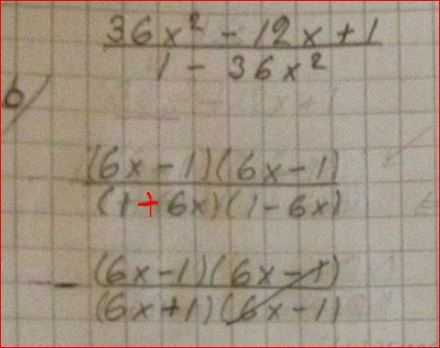 36x² - 12x + 1
1 - 36x²
b)
(6x - 1)(6x - 1)
(1 + 6x)(1 - 6x)
- (6x - 1)(6x - 1)
(6x + 1)(6x - 1)